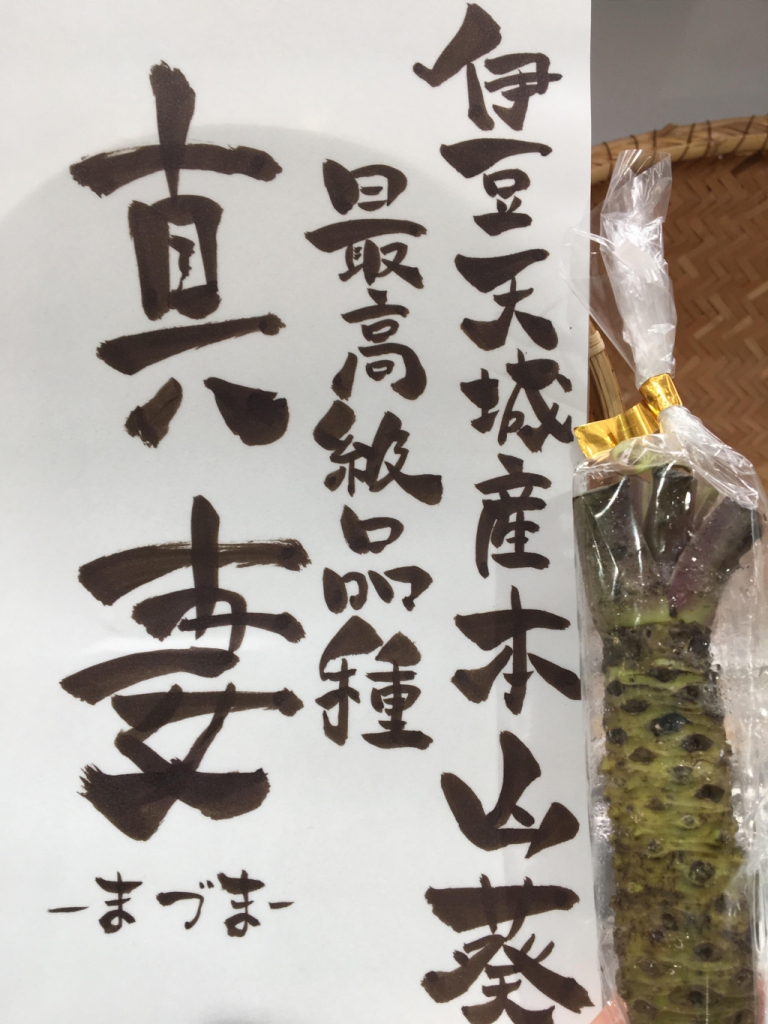 伊豆天城産本山葵
最高級品種
真妻
-まづま-